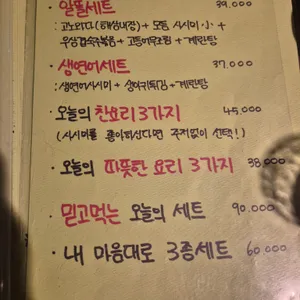 · 알뜰세트 39.000
: 고노와다(해삼내장) + 모듬 사시미 小 +
우삼겹숙주볶음 + 고등어무조림 + 계란탕
· 생연어세트 37.000
: 생연어사시미 + 연어튀김 + 계란탕
· 오늘의 찬요리 3가지 45.000
(사시미를 좋아하신다면 주저없이 선택!)
· 오늘의 따뜻한 요리 3가지 38.000
· 믿고먹는 오늘의 세트 90.000
· 내 마음대로 3종세트 60.000